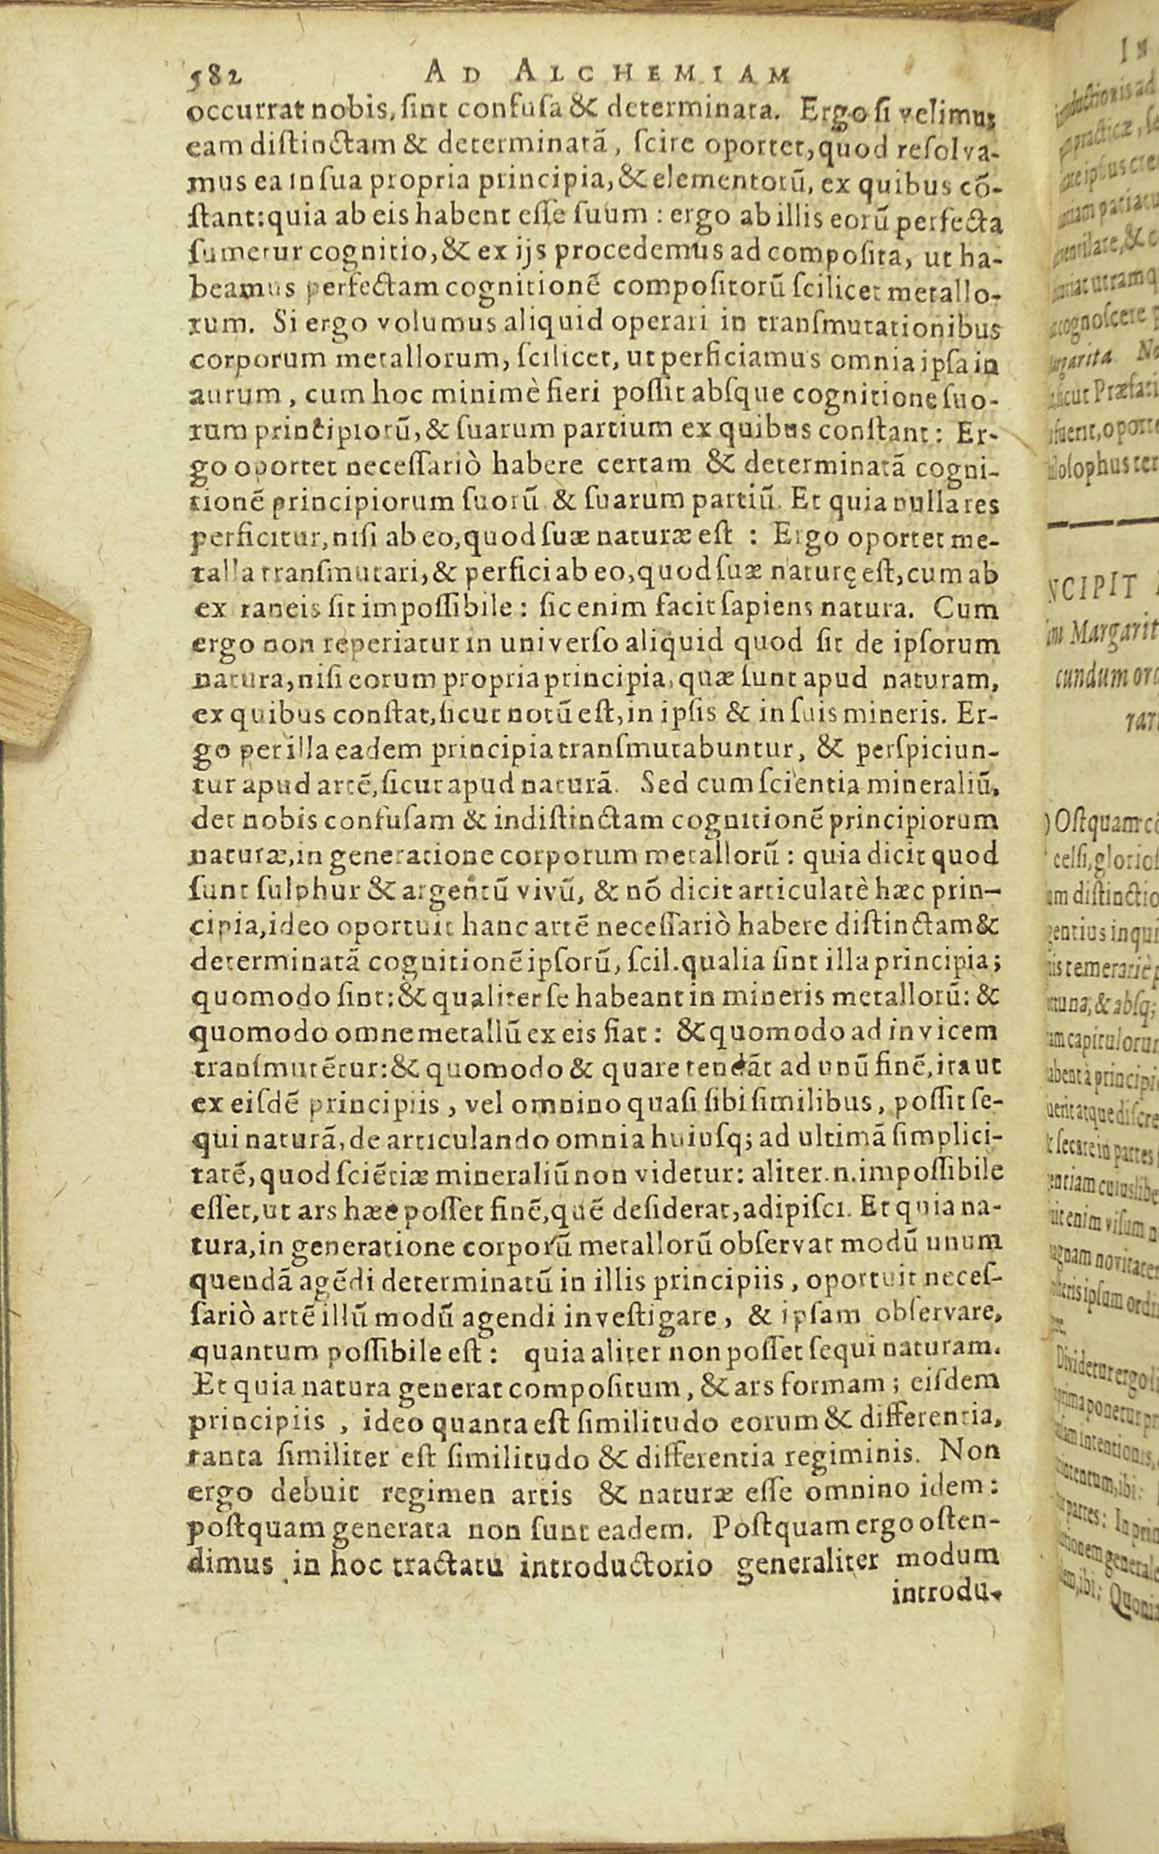 582 AD ALCHEMIAM
occurrat nobis, ſint confuſa & determinata. Ergo ſi velimus
eam diſtinctam & determinatā, ſcire oportet, quod reſolva-
mus ea in ſua propria principia, & elementorū, ex quibus cō-
ſtant: quia ab eis habent eſſe ſuum: ergo ab illis eorū perfecta
ſumetur cognitio, & ex ijs procedemus ad compoſita, ut ha-
beamus perfectam cognitionē compoſitorū ſcilicet metallo-
rum. Si ergo volumus aliquid operari in tranſmutationibus
corporum metallorum, ſcilicet, ut perficiamus omnia ipſa in
aurum, cum hoc minimè fieri poſſit abſque cognitione ſuo-
rum principiorū, & ſuarum partium ex quibus conſtant: Er-
go oportet neceſſariò habere certam & determinatā cogni-
tionē principiorum ſuorū & ſuarum partiū. Et quia nulla res
perficitur, niſi ab eo, quod ſuæ naturæ eſt: Ergo oportet me-
talla tranſmutari, & perfici ab eo, quod ſuæ naturę eſt, cum ab
ex raneis ſit impoſſibile: ſic enim facit ſapiens natura. Cum
ergo non reperiatur in univerſo aliquid quod ſit de ipſorum
natura, niſi eorum propria principia, quæ ſunt apud naturam,
ex quibus conſtat, ſicut notū eſt, in ipſis & in ſuis mineris. Er-
go per illa eadem principia tranſmutabuntur, & perſpiciun-
tur apud artē, ſicut apud naturā. Sed cum ſcientia mineraliū,
det nobis confuſam & indiſtinctam cognitionē principiorum
naturæ, in generatione corporum metallorū: quia dicit quod
ſunt ſulphur & argentū vivū, & nō dicit articulatè hæc prin-
cipia, ideo oportuit hanc artē neceſſariò habere diſtinctam &
determinatā cognitionē ipſorū, ſcil. qualia ſint illa principia;
quomodo ſint: & qualiter ſe habeant in mineris metallorū: &
quomodo omne metallū ex eis fiat: & quomodo ad invicem
tranſmutētur: & quomodo & quare tendāt ad unū finē, ita ut
ex eiſdē principiis, vel omnino quaſi ſibi ſimilibus, poſſit ſe-
qui naturā, de articulando omnia huiuſq; ad ultimā ſimplici-
tatē, quod ſciētiæ mineraliū non videtur: aliter .n. impoſſibile
eſſet, ut ars hæc poſſet finē, quē deſiderat, adipiſci. Et quia na-
tura, in generatione corporū metallorū obſervat modū unum
quendā agēdi determinatū in illis principiis, oportuit neceſ-
ſariò artē illū modū agendi inveſtigare, & ipſam obſervare,
quantum poſſibile eſt: quia aliter non poſſet ſequi naturam.
Et quia natura generat compoſitum, & ars formam; eiſdem
principiis, ideo quanta eſt ſimilitudo eorum & differentia,
tanta ſimiliter eſt ſimilitudo & differentia regiminis. Non
ergo debuit regimen artis & naturæ eſſe omnino idem:
poſtquam generata non ſunt eadem. Poſtquam ergo oſten-
dimus in hoc tractatu introductorio generaliter modum
introdu-